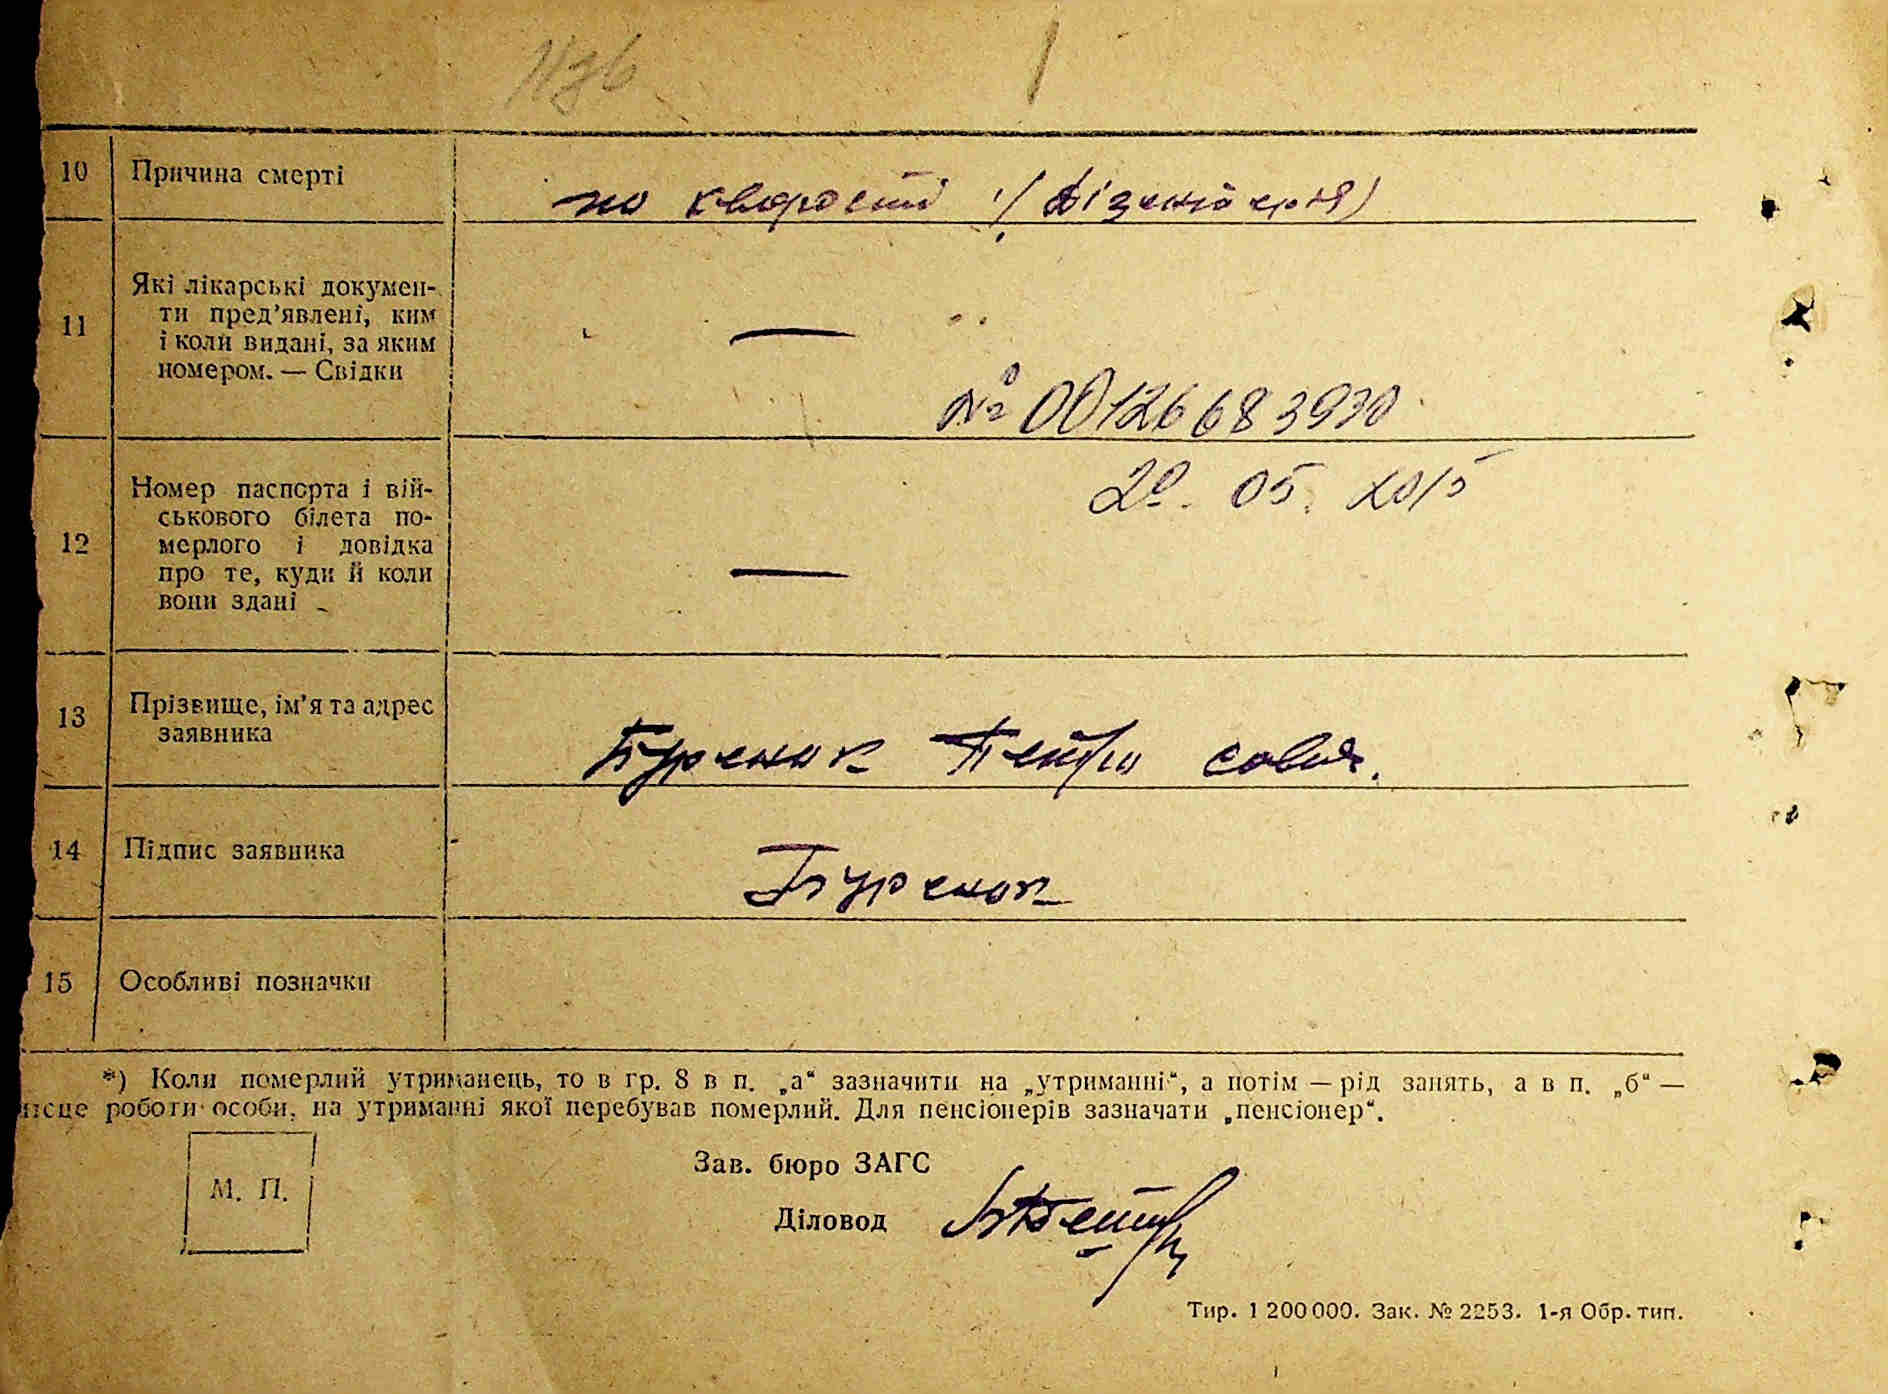 10 Причина смерті
по кворости (дізентерія)
11 Які лікарські докумен-
ти пред’явлені, ким
і коли видані, за яким
номером. — Свідки
—
№ 00126683930
12 Номер паспорта і вій-
ськового білета по-
мерлого і довідка
про те, куди й коли
вони здані
20.05.2015
—
13 Прізвище, ім’я та адрес
заявника
Буренок Петро
14 Підпис заявника
Буренок
15 Особливі позначки
*) Коли померлий утриманець, то в гр. 8 в п. „а“ зазначити на „утриманні“, а потім — рід занять, а в п. „б“ —
місце роботи особи, на утриманні якої перебував померлий. Для пенсіонерів зазначати „пенсіонер“.
М. П.
Зав. бюро ЗАГС
Діловод
Тир. 1 200 000. Зак. № 2253. 1-я Обр. тип.